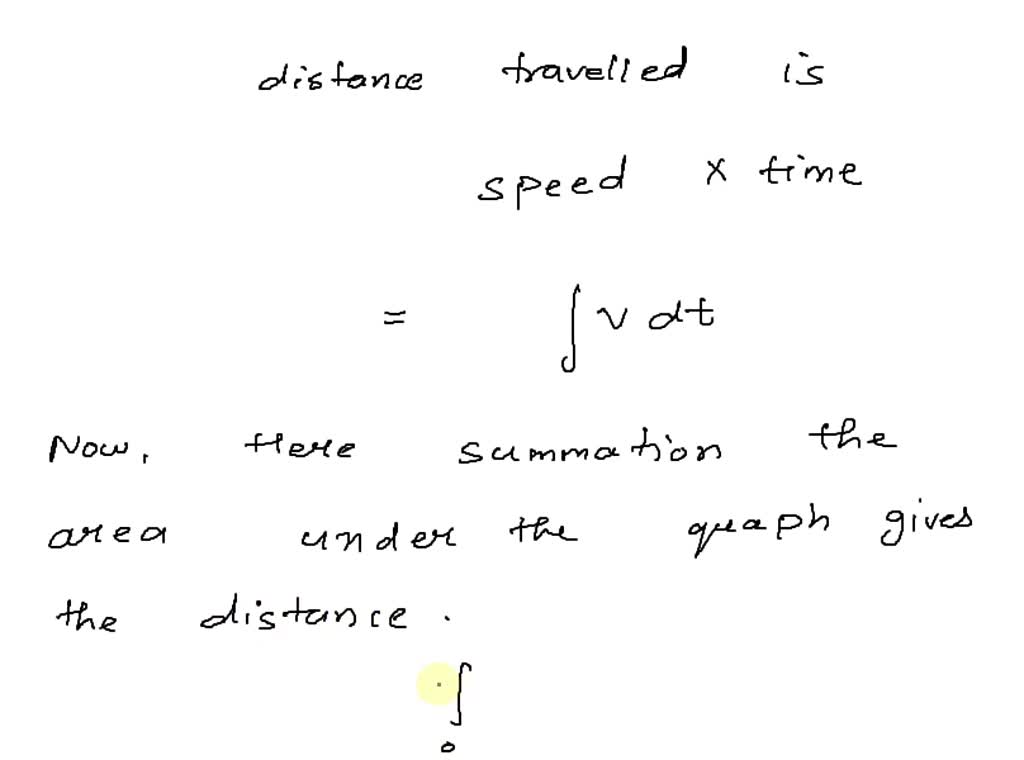 distance travelled is
speed × time
= ∫ v dt
Now, Here summation the
area under the quaph gives
the distance.
∫
0